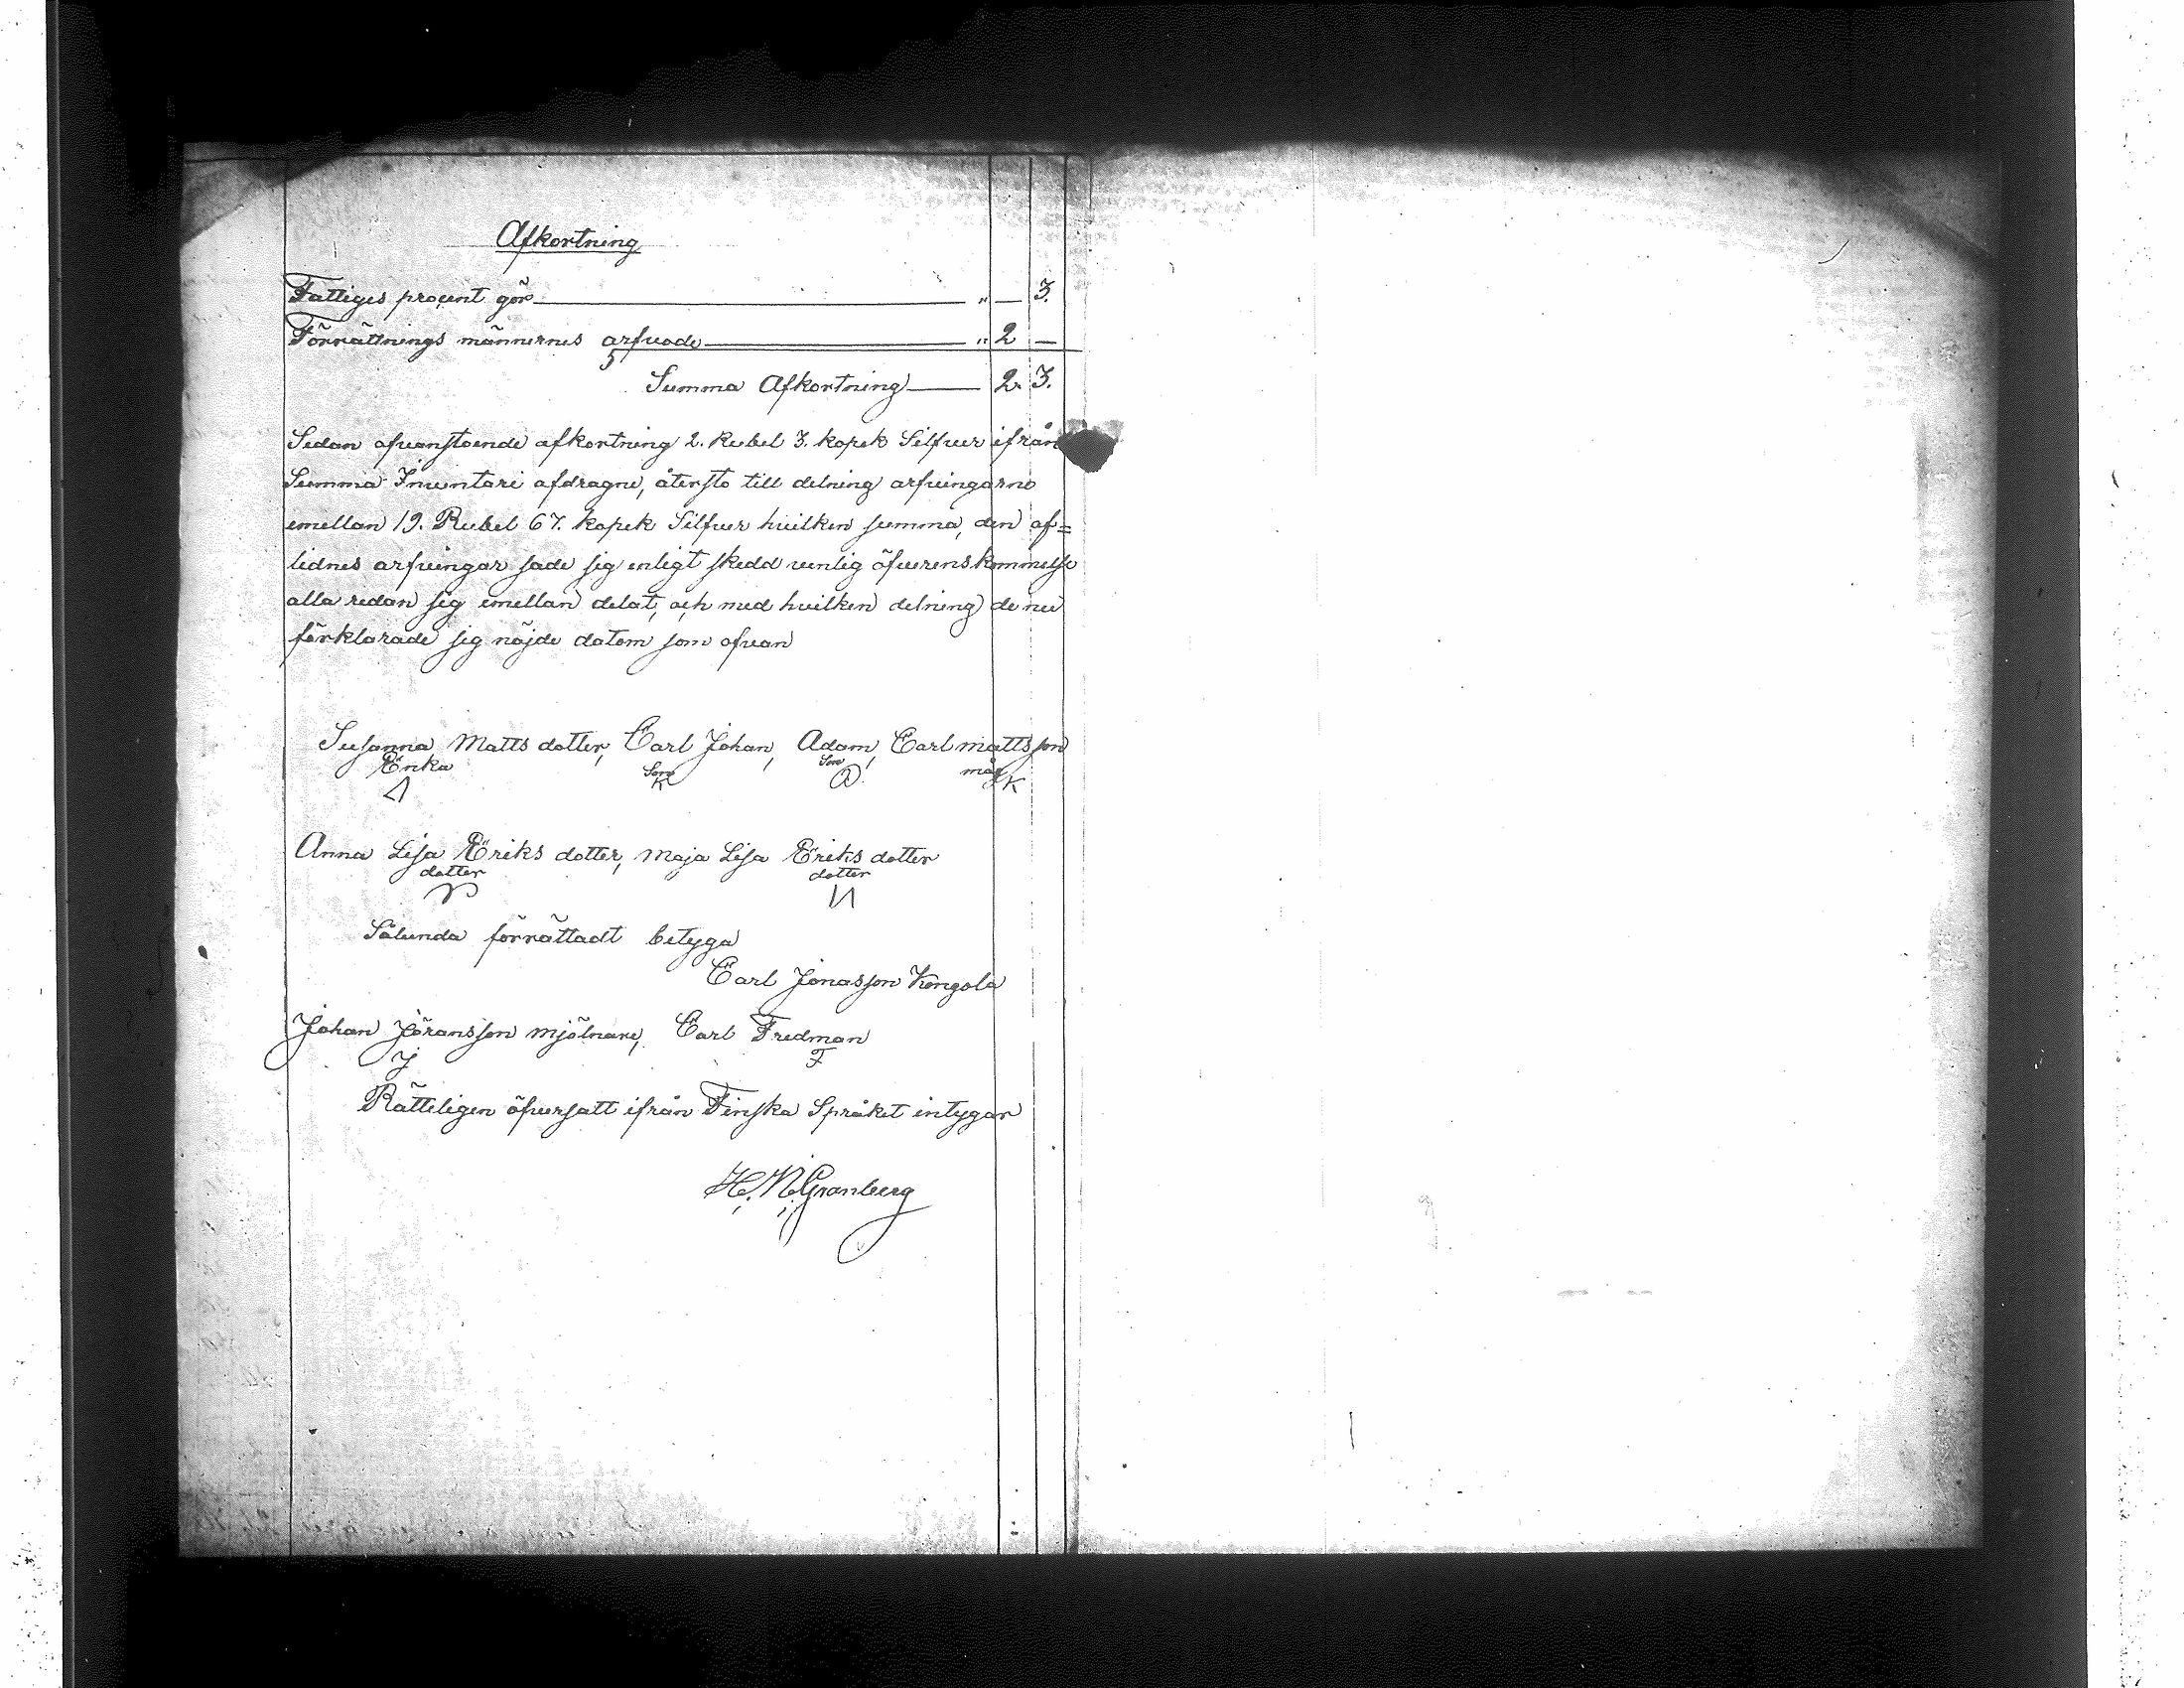 Afkortning
Fattiges procent gör " — 3.
Förrättnings männernes arfvode " 2 —
Summa Afkortning 2. 3.
Sedan ofvanstoende afkortning 2. Rubel 3. kopek Silfver ifrån
Summa Inventari afdragne, återsto till delning arfvingarne
emellan 19. Rubel 67. kopek Silfver hvilken summa, den af=
lidnes arfvingar sade sig enligt skedd venlig öfverenskommelse
alla redan sig emellan delat, och med hvilken delning de nu
förklarade sig nöjde datom som ofvan
Susanna Matts dotter, Carl Johan, Adam, Carl mattsson
Enka Son Son måg
K A K
Anna Lisa Eriks dotter, Maja Lisa Eriks dotter
dotter dotter
Sålunda förrättadt betyga
Carl Jonasson Kengola
Johan Jöransson mjölnare, Carl Fredman
J F
Rätteligen öfversatt ifrån Finska Språket intygar
H. N. Granberg